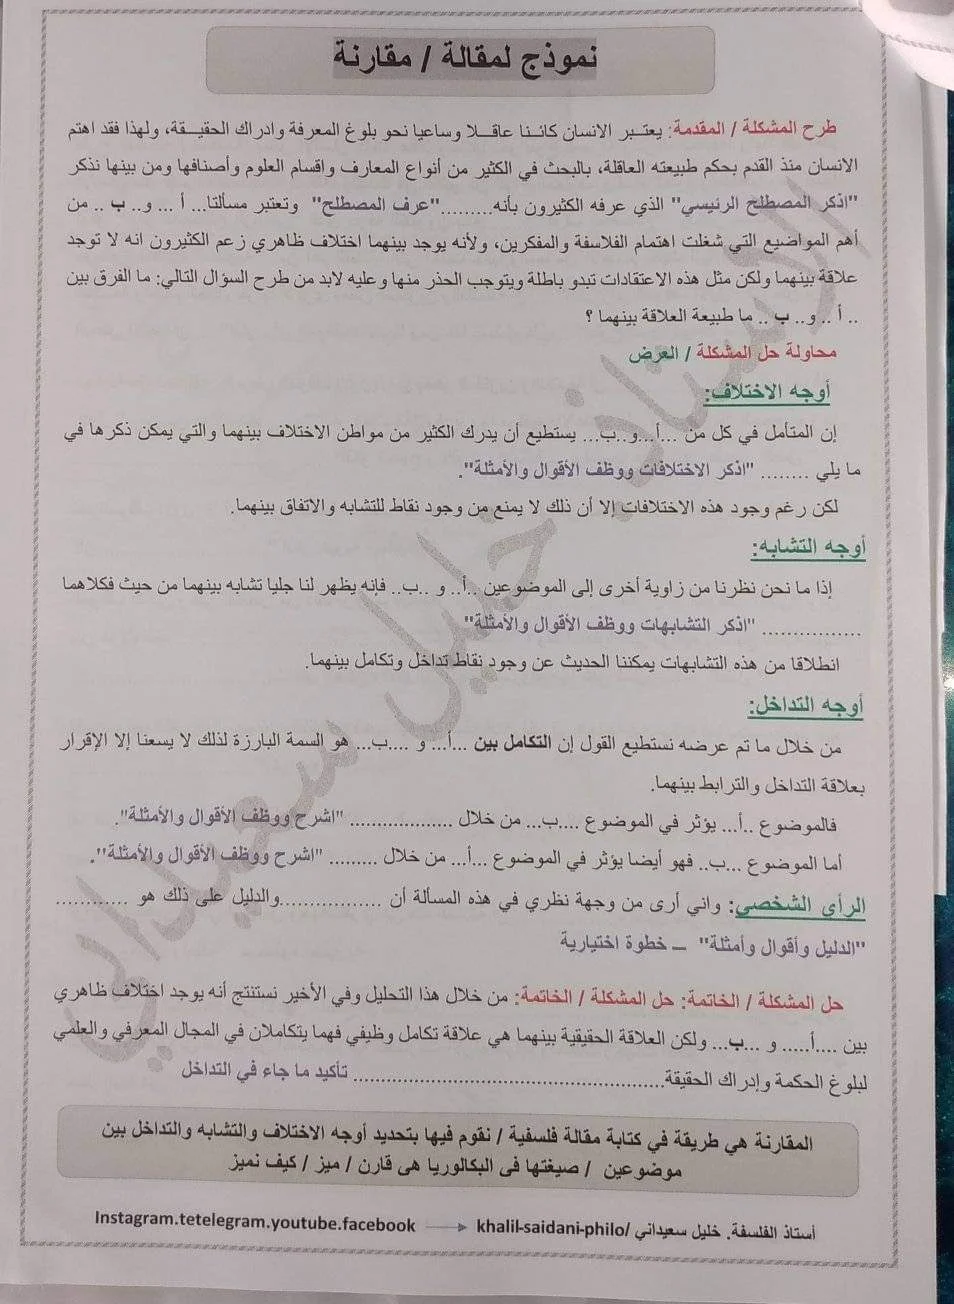 نموذج لمقالة / مقارنة
طرح المشكلة / المقدمة: يعتبر الانسان كائنا عاقلا وساعيا نحو بلوغ المعرفة وادراك الحقيقة، ولهذا فقد اهتم
الانسان منذ القدم بحكم طبيعته العاقلة، بالبحث في الكثير من أنواع المعارف واقسام العلوم وأصنافها ومن بينها نذكر
"اذكر المصطلح الرئيسي" الذي عرفه الكثيرون بأنه.........."عرف المصطلح" وتعتبر مسألتا... أ ... و.. ب .. من
أهم المواضيع التي شغلت اهتمام الفلاسفة والمفكرين، ولأنه يوجد بينهما اختلاف ظاهري زعم الكثيرون انه لا توجد
علاقة بينهما ولكن مثل هذه الاعتقادات تبدو باطلة ويتوجب الحذر منها وعليه لابد من طرح السؤال التالي: ما الفرق بين
.. أ .. و.. ب .. ما طبيعة العلاقة بينهما ؟
محاولة حل المشكلة / العرض
أوجه الاختلاف:
إن المتأمل في كل من ...أ...و..ب... يستطيع أن يدرك الكثير من مواطن الاختلاف بينهما والتي يمكن ذكرها في
ما يلي ........ "اذكر الاختلافات ووظف الأقوال والأمثلة".
لكن رغم وجود هذه الاختلافات إلا أن ذلك لا يمنع من وجود نقاط للتشابه والاتفاق بينهما.
أوجه التشابه:
إذا ما نحن نظرنا من زاوية أخرى إلى الموضوعين ..أ.. و ..ب.. فإنه يظهر لنا جليا تشابه بينهما من حيث فكلاهما
................ "اذكر التشابهات ووظف الأقوال والأمثلة"
انطلاقا من هذه التشابهات يمكننا الحديث عن وجود نقاط تداخل وتكامل بينهما.
أوجه التداخل:
من خلال ما تم عرضه نستطيع القول إن التكامل بين ...أ... و ....ب... هو السمة البارزة لذلك لا يسعنا إلا الإقرار
بعلاقة التداخل والترابط بينهما.
فالموضوع ..أ... يؤثر في الموضوع ....ب... من خلال .................. "اشرح ووظف الأقوال والأمثلة".
أما الموضوع ...ب.. فهو أيضا يؤثر في الموضوع ...أ... من خلال ......... "اشرح ووظف الأقوال والأمثلة".
الرأي الشخصي: واني أرى من وجهة نظري في هذه المسألة أن ..................والدليل على ذلك هو .............
"الدليل وأقوال وأمثلة" – خطوة اختيارية
حل المشكلة / الخاتمة: حل المشكلة / الخاتمة: من خلال هذا التحليل وفي الأخير نستنتج أنه يوجد اختلاف ظاهري
بين ....أ..... و ...ب... ولكن العلاقة الحقيقية بينهما هي علاقة تكامل وظيفي فهما يتكاملان في المجال المعرفي والعلمي
لبلوغ الحكمة وإدراك الحقيقة.................................................... تأكيد ما جاء في التداخل
المقارنة هي طريقة في كتابة مقالة فلسفية / نقوم فيها بتحديد أوجه الاختلاف والتشابه والتداخل بين
موضوعين / صيغتها في البكالوريا هي قارن / ميز / كيف نميز
أستاذ الفلسفة. خليل سعيداني /khalil-saidani-philo → Instagram.tetelegram.youtube.facebook
الاستاذ. خليل سعيداني